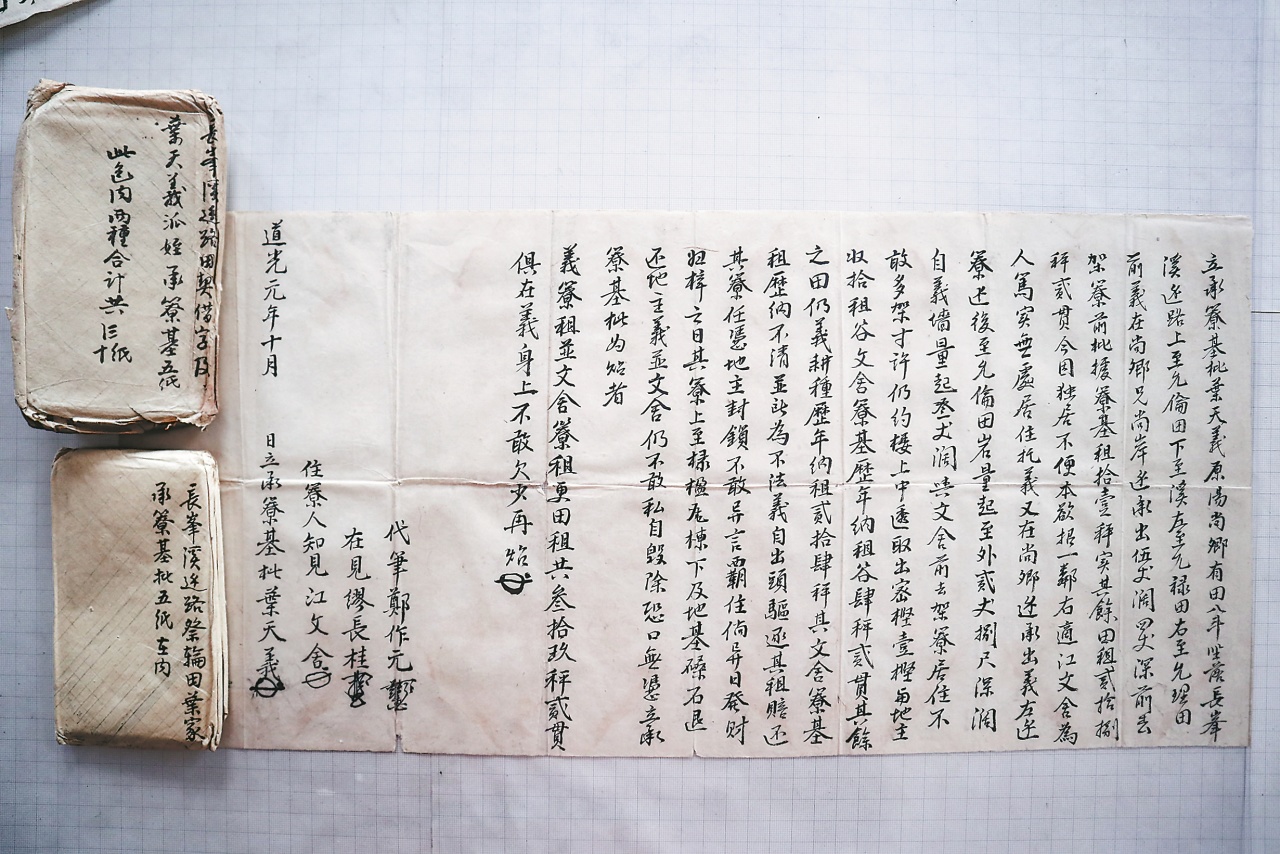 立承寮基批葉天義原為尚鄉有田八斗坐落長峯
溪边路上至允倫田下至溪左至元禄田右至允理田
前義在尚鄉兄尚岸边承出伍丈濶四丈深前去
架寮前批據寮基租拾壹秤实其餘田租貳拾捌
秤貳貫今因独居不便本欲招一鄰右適江文舍為
人篤实無處居住托義又在尚鄉边承出義左边
寮边後至允倫田岩量起至外貳丈捌尺深濶
自義墻量起丈濶與文舍前去架寮居住不
敢多架寸許仍約楼上中透取出密樫壹樫與地主
收拾租谷文舍寮基歷年納租谷肆秤貳貫其餘
之田仍義耕種歷年納租貳拾肆秤其文舍寮基
租歷納不清並為不法義自出頭驅逐其租賠还
其寮任憑地主封鎖不敢异言霸住倘异日發財
梓之日其寮上至椽楹瓦棟下及地基磉石退
还地主義並文舍仍不敢私自毁除恐口無憑立承
寮基批為炤者
義寮租並文舍寮租更田租共叁拾玖秤貳貫
俱在義身上不敢欠少再炤
代筆鄭作元
在見繆長桂
住寮人知見江文舍
道光元年十月 日立承寮基批葉天義
長峯溪边路田契借字及
葉天義派姪承寮基五紙
此包内兩種合計共三十紙
長峯溪边路祭輪田葉家
承寮基批五紙在内